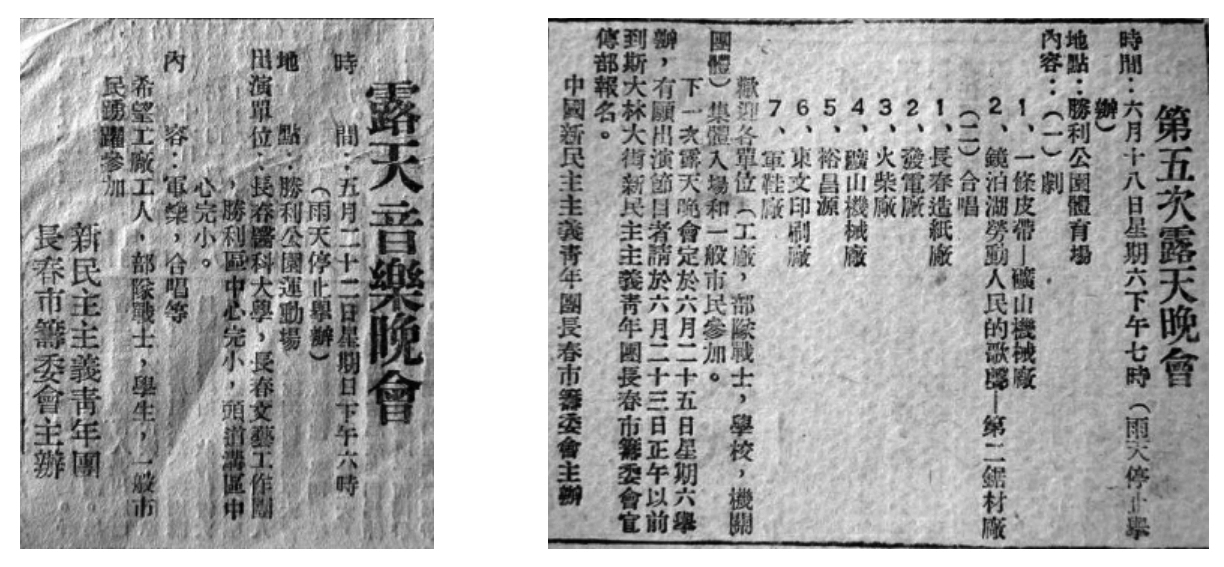 露天音樂晚會
時　間：五月二十二日星期日下午六時
（雨天停止舉辦）
地　點：勝利公園運動場
出演單位：長春醫科大學，長春文藝工作團
，勝利區中心完小，頭道溝區中
心完小。
內　容：軍樂，合唱等
希望工廠工人，部隊戰士，學生，一般市
民踴躍參加
新民主主義青年團
長春市籌委會主辦
第五次露天晚會
時間：六月十八日星期六下午七時（雨天停止舉
辦）
地點：勝利公園體育場
內容：（一）劇
1、一條皮帶—礦山機械廠
2、鏡泊湖勞動人民的歌聲—第二鋸材廠
（二）合唱
1、長春造紙廠
2、發電廠
3、火柴廠
4、礦山機械廠
5、裕昌源
6、東文印刷廠
7、軍鞋廠
歡迎各單位（工廠，部隊戰士，學校，機關
團體）集體入場和一般市民參加。
下一次露天晚會定於六月二十五日星期六舉
辦，有願出演節目者請於六月二十三日正午以前
到斯大林大街新民主主義青年團長春市籌委會宣
傳部報名。
中國新民主主義青年團長春市籌委會主辦